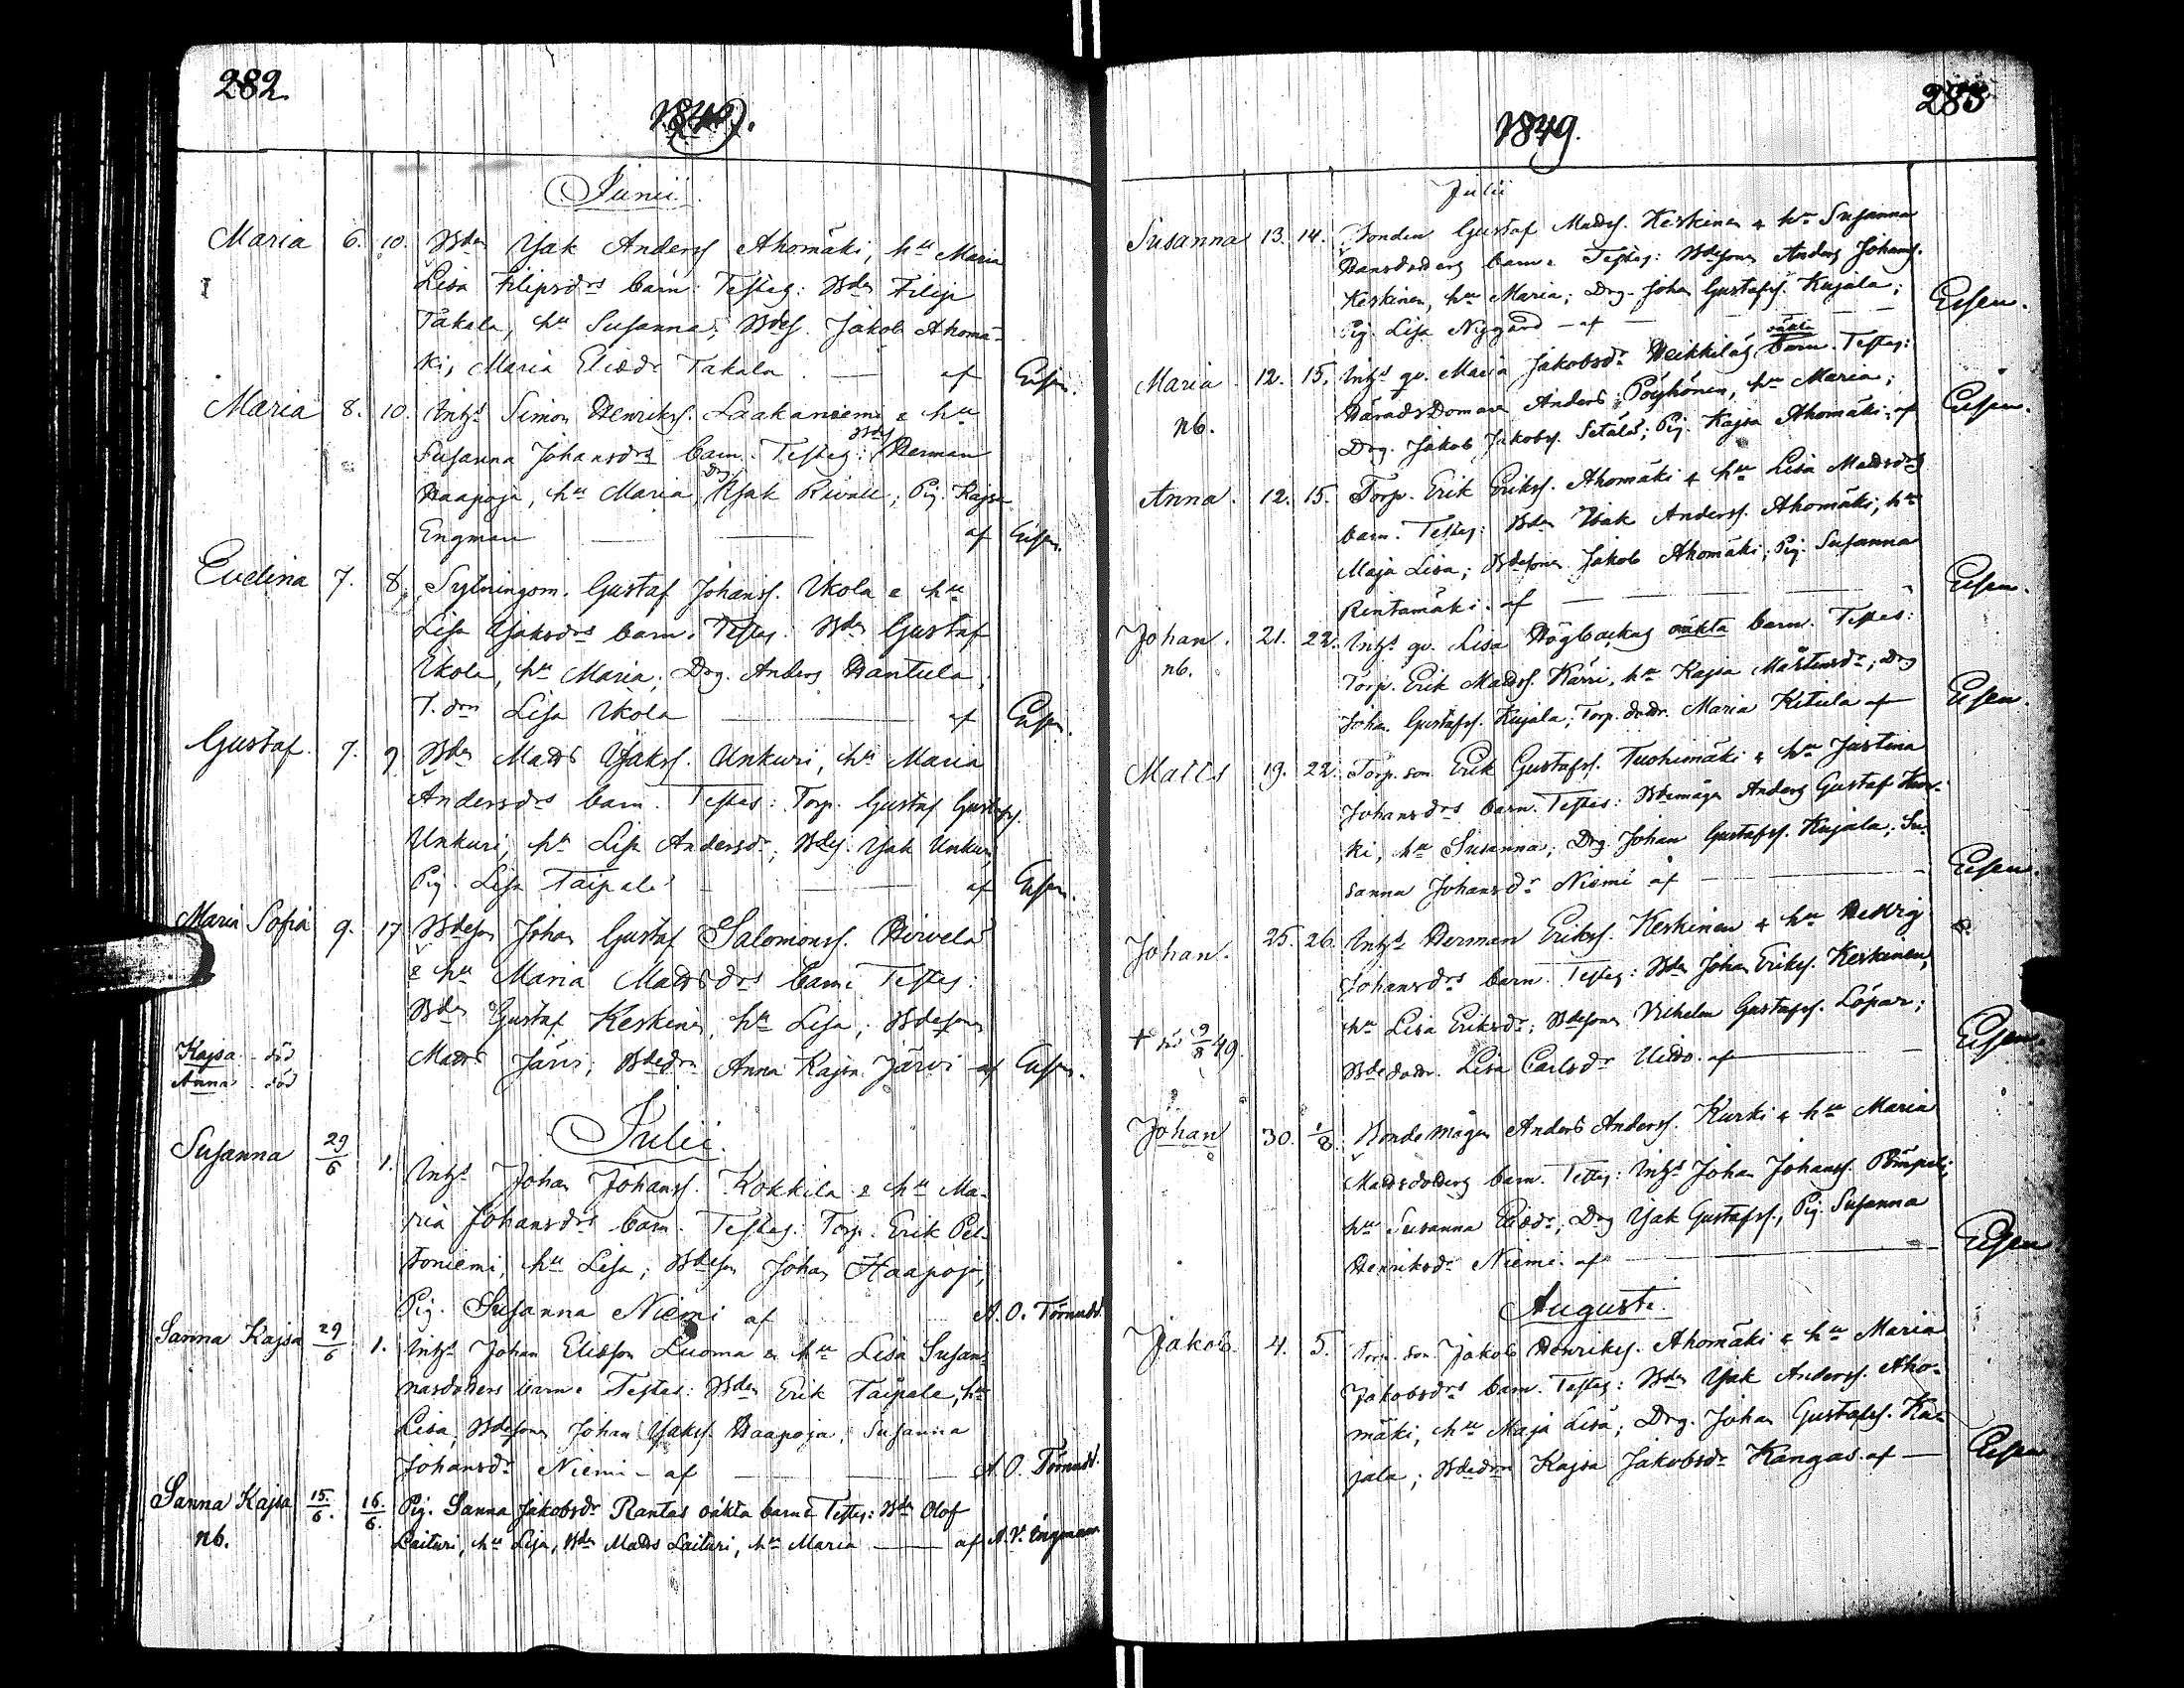 282.
1849.
Junii.
Maria 6. 10. Bden Isak Anderss Ahomäki, hu Maria
Lisa Filipsdrs barn. Testes: Bden Filip
Takala, hu Susanna; Bdes. Jakob Ahomä-
ki, Maria Eliædr Takala — af Eisen.
Maria 8. 10. Inhs Simon Henrikss. Laakaniemi & hu
Susanna Johansdrs barn. Testes: Bdes Herman
Haapoja, hu Maria, Drg Isak Rivall; Pig. Kajsa
Engman — af Eisen.
Evelina 7. 8. Sytningsm. Gustaf Johanss. Ikola & hu
Lisa Isaksdrs barn. Testes: Bden Gustaf
Ikola, hu Maria; Drg. Anders Hantula;
T. drn Lisa Ikola — af Eisen.
Gustaf. 7. 9. Bden Matts Isakss. Unkuri, hu Maria
Andersdrs barn. Testes: Torp. Gustaf Gustafss.
Unkuri, hu Lisa Andersdr; Bdes. Isak Unkuri,
Pig. Lisa Taipale — af Eisen.
Maria Sofia 9. 17 Bdeson Johan Gustaf Salomonss. Hirvelä
& hu Maria Mattsdrs barn. Testes:
Bden Gustaf Keskinen, hu Lisa; Bdesonen
Kajsa - död
Matts Järvi; Bdedrn Anna Kajsa Järvi - af Eisen.
Anna - död
Julii.
Susanna 29/6 1. Inhs Johan Johanss. Kokkila & hu Ma-
ria Johansdrs barn. Testes: Torp. Erik Pel-
toniemi, hu Lisa; Bdeson Johan Haapoja,
Pig. Susanna Niemi af A. O. Törnudd.
Sanna Kajsa 29/6 1. Inhs Johan Elisson Luoma & hu Lisa Susan-
nasdotters barn. Testes: Bden Erik Taipale, hu
Lisa, Bdesonen Johan Isakss. Haapoja, Susanna
Johansdr Niemi - af — A. O. Törnudd.
Sanna Kajsa 15/6. 16/6. Pig. Sanna Jakobsdr Rantas oäkta barn. Testes: Bden Olof
nb. Laituri, hu Lisa, Bden Matts Laituri, hu Maria — af A. V. Engman
283
1849.
Julii
Susanna 13. 14. Bonden Gustaf Mattss. Keskinen & hu Susanna
Hansdotters barn. Testes: Bdesonen Anders Johanss.
Keskinen, hu Maria; Drg. Johan Gustafss. Kujala;
Pig. Lisa Nygård - af — Eisen.
Maria. 12. 15. Inhs qv. Maria Jakobsdr Heikkiläs oäkta barn. Testes:
nb. Häradsdomaren Anders Pöyhönen, hu Maria;
Drg. Jakob Jakobss. Setälä; Pig. Kajsa Ahomäki, af Eisen.
Anna. 12. 15. Torp. Erik Erikss. Ahomäki & hu Lisa Mattsdrs
barn. Testes: Bden Isak Anderss. Ahomäki, hu
Maja Lisa; Bdesonen Jakob Ahomäki; Pig. Susanna
Rintamäki. af — Eisen.
Johan. 21. 22. Inhs qv. Lisa Högbackas oäkta barn. Testes:
nb. Torp. Erik Mattss. Kärri, hu Kajsa Mårtensdr; Drg
Johan Gustafss. Kujala; Torp. dottr. Maria Kitula af Eisen.
Matts 19. 22. Torp. son Erik Gustafss. Tuohimäki & hu Justina
Johansdrs barn. Testes: Bdemågen Anders Gustaf Kur-
ki, hu Susanna; Drg. Johan Gustafss. Kujala, Su-
sanna Johansdr Niemi af — Eisen.
Johan. 25. 26. Inhs Herman Erikss. Keskinen & hu Hedvig
Johansdrs barn. Testes: Bden Johan Erikss. Keskinen,
hu Lisa Eriksdr; Bdesonen Vilhelm Gustafss. Löpar;
+ död 9/8 49.
Bdedottr. Lisa Carlsdr Uitto. af — Eisen.
Johan 30. 1/8. Bondemågen Anders Anderss. Kurki & hu Maria
Mattsdotters barn. Testes: Inhs Johan Johanss. Pimpeli;
hu Susanna Eliædr; Drg Isak Gustafss., Pig Susanna
Henriksdr Niemi. af — Eisen
Augusti.
Jakob. 4. 5. Torp. son Jakob Henrikss. Ahomäki & hu Maria
Jakobsdrs barn. Testes: Bden Isak Anderss. Aho-
mäki, hu Maja Lisa; Drg. Johan Gustafss. Ku-
jala; Bdedrn Kajsa Jakobsdr Kangas. af — Eisen